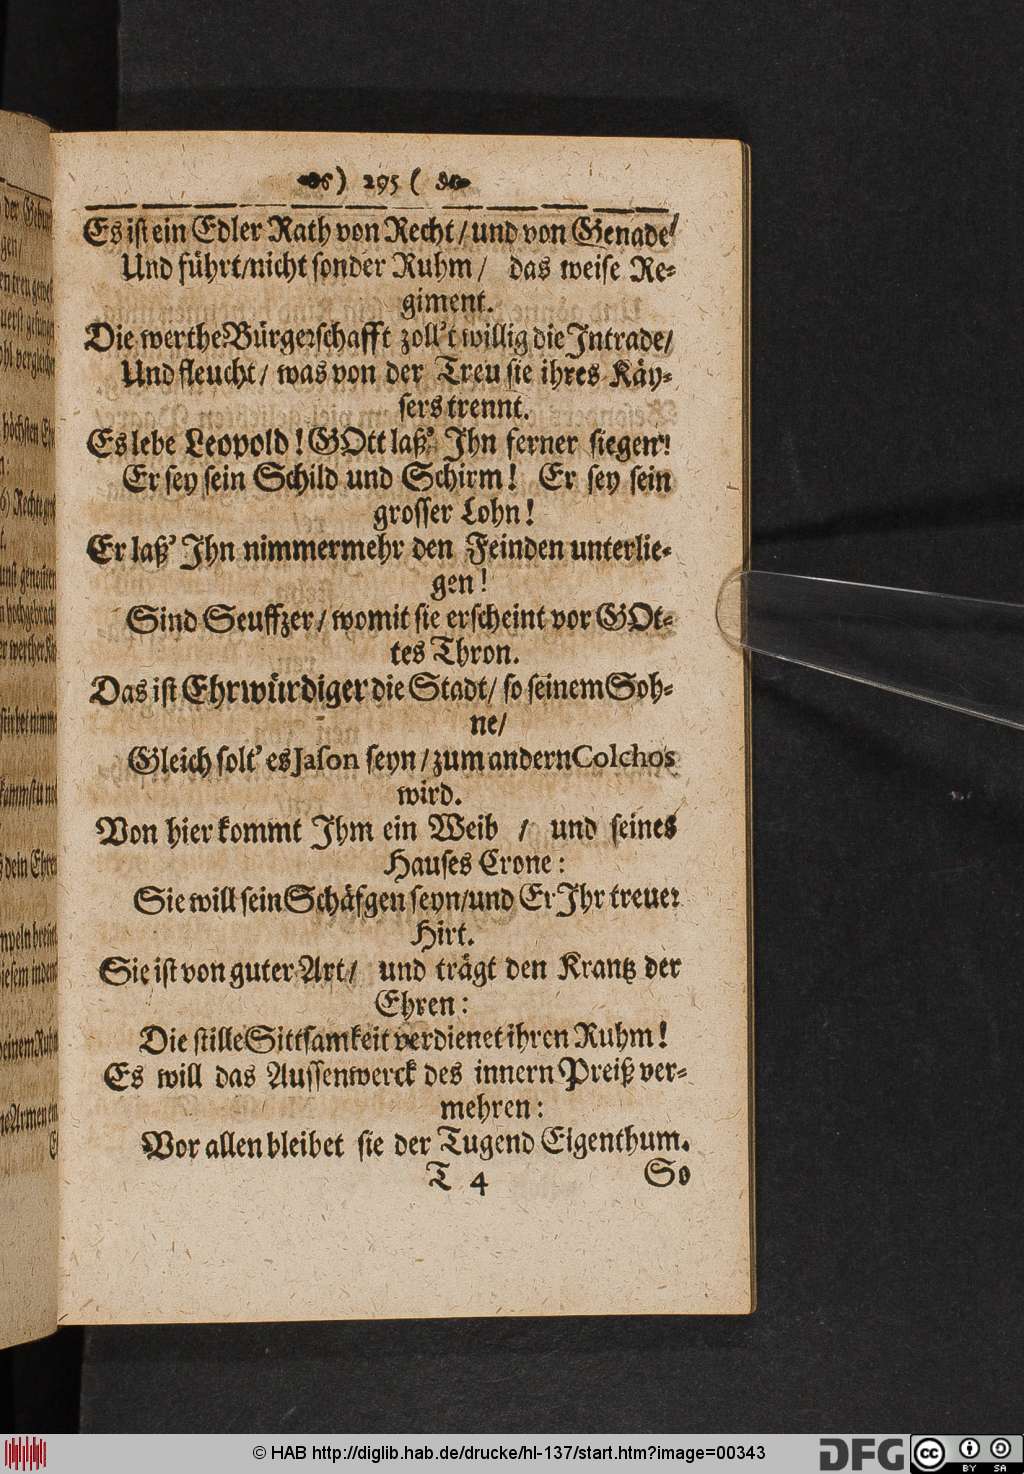 ) 295 (
Es ist ein Edler Rath von Recht / und von Genade /
Und führt / nicht sonder Ruhm / das weise Re-
giment.
Die werthe Bürgerschafft zoll't willig die Intrade /
Und fleucht / was von der Treu sie ihres Käy-
sers trennt.
Es lebe Leopold! GOtt laß' Ihn ferner siegen!
Er sey sein Schild und Schirm! Er sey sein
grosser Lohn!
Er laß' Ihn nimmermehr den Feinden unterlie-
gen!
Sind Seuffzer / womit sie erscheint vor GOt-
tes Thron.
Das ist Ehrwürdiger die Stadt / so seinem Soh-
ne /
Gleich solt' es Jason seyn / zum andern Colchos
wird.
Von hier kommt Ihm ein Weib / und seines
Hauses Crone:
Sie will sein Schäfgen seyn / und Er Ihr treuer
Hirt.
Sie ist von guter Art / und trägt den Krantz der
Ehren:
Die stille Sittsamkeit verdienet ihren Ruhm!
Es will das Aussenwerck des innern Preiß ver-
mehren:
Vor allen bleibet sie der Tugend Eigenthum.
T 4 So
© HAB http://diglib.hab.de/drucke/hl-137/start.htm?image=00343
DFG
cc BY SA